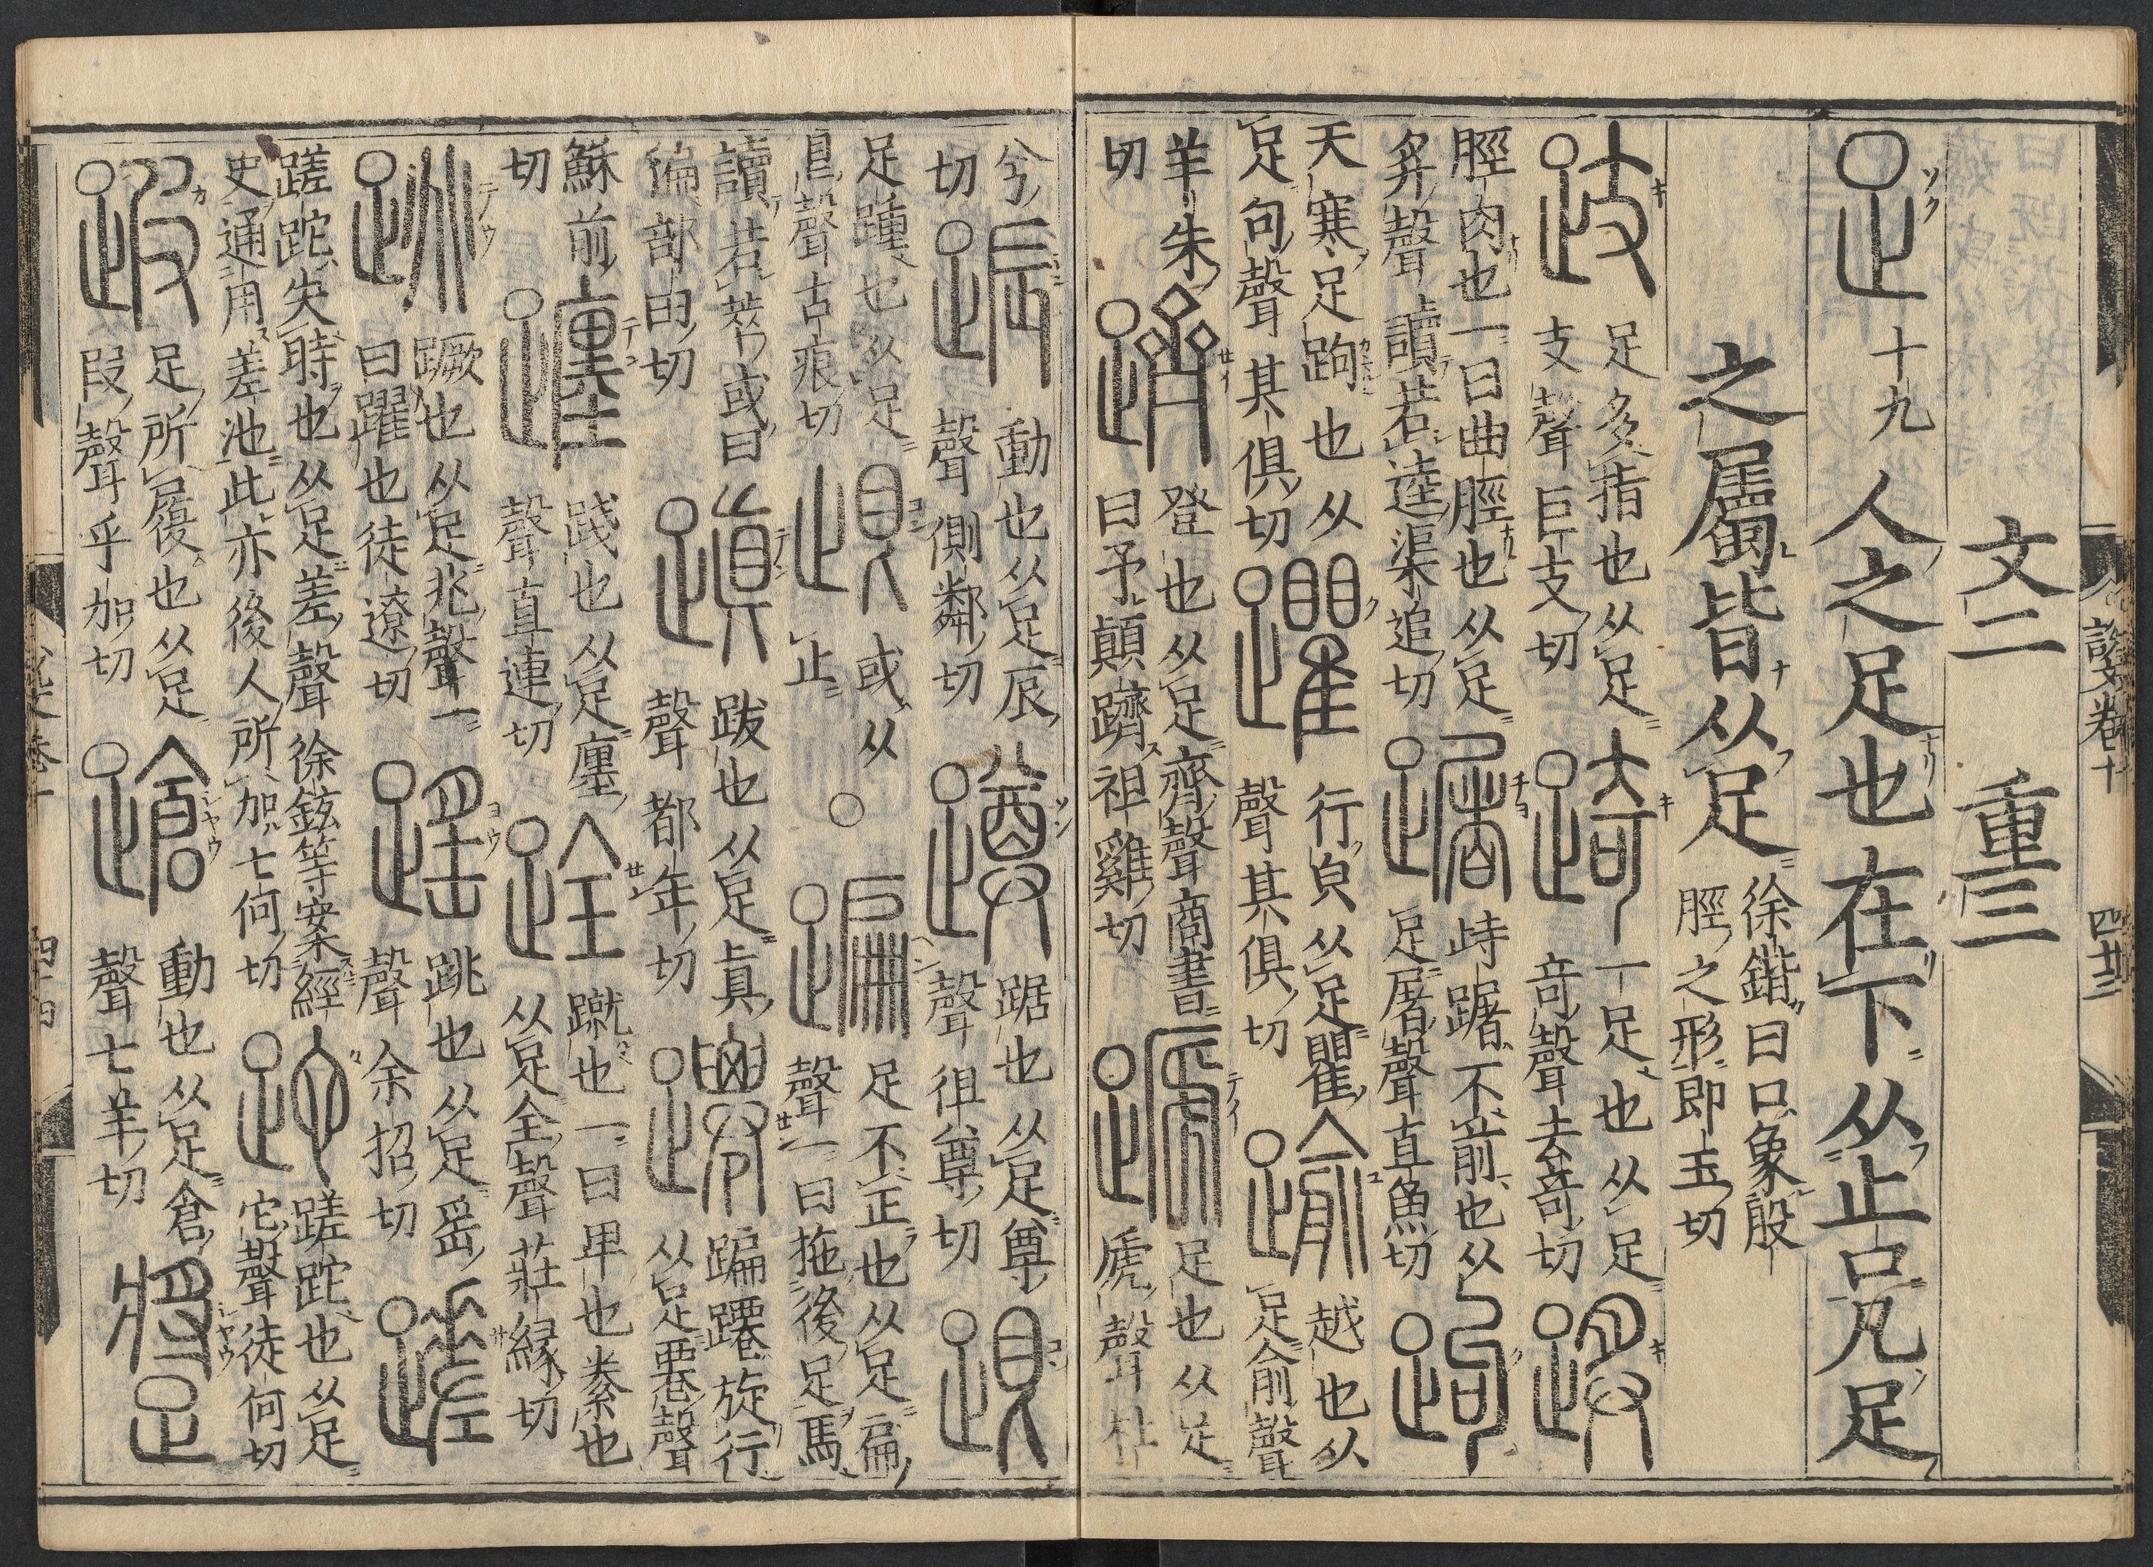 文二 重三
足 十九 人之足也在下从止口凡足
之屬皆从足 徐鍇曰口象股
脛之形即玉切
跂 足多指也从足
支聲巨支切
踦 一足也从足
奇聲去奇切
䠏
脛肉也一曰曲脛也从足
𢍏聲讀若逵渠追切
躇 峙踞不前也从
足屠聲直魚切
跔
天寒足跔也从
足句聲其俱切
躣 行皃从足瞿
聲其俱切
踰 越也从
足俞聲
羊朱
切
躋 登也从足齊聲商書
曰予顛躋祖雞切
蹏 足也从足
虒聲杜
説文卷十
兮
切
䟴 動也从足辰
聲側鄰切
蹲 踞也从足尊
聲徂尊切
跟
足踵也从足
艮聲古痕切
𣥦 或从
止
○
蹁 足不正也从足扁
聲一曰拖後足馬
讀若苹或曰
徧部田切
蹎 跋也从足真
聲都年切
躚 蹁躚旋行
从足䙴聲
蘇前
切
躔 踐也从足廛
聲直連切
跧 蹴也一曰卑也絭也
从足全聲莊緣切
跳 蹶也从足兆聲一
曰躍也徒遼切
䠛 跳也从足䍃
聲余招切
蹉
蹉跎失時也从足差聲徐鉉等案經
史通用差池此亦後人所加七何切
跎 蹉跎也从足
它聲徒何切
𨁰 足所履也从足
叚聲乎加切
蹌 動也从足倉
聲七羊切
蹡